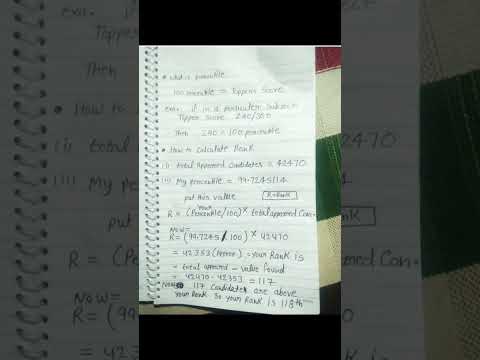 • What is percentile
100 percentile = Topper Score
exm. if in a particular Subject
Topper Score 240/300
Then 240 = 100 percentile
• How to Calculate Rank
(i) total Appeared Candidates = 42470
(ii) My percentile = 99.7245114
put this value R=Rank
your
R = (Percentile/100) × total appeared Can.
Now =
R = (99.7245/100) × 42470
= 42353 (Approx) = your Rank is
= total appeared - value found
= 42470 - 42353 = 117
Now 117 Candidates are above
your Rank So your Rank is 118th